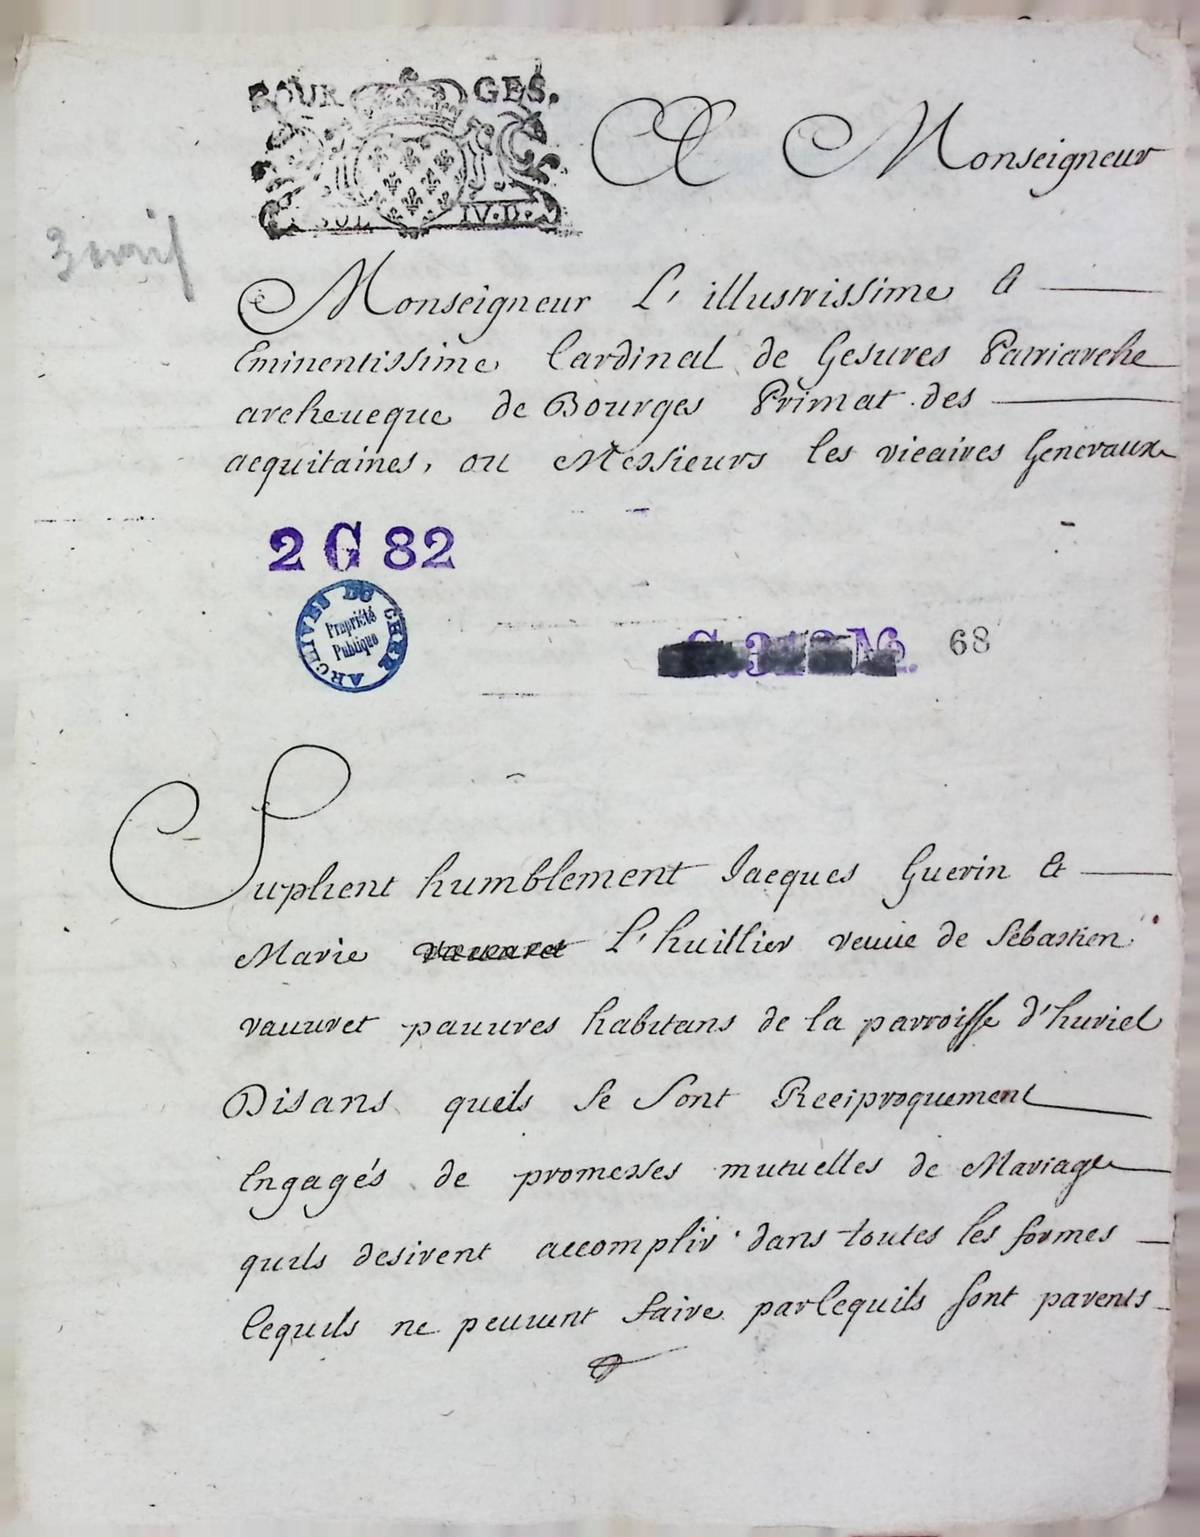 BOURGES.
SOL IV.D.
A Monseigneur
3 avril
Monseigneur L'illustrissime &
Eminentissime Cardinal de Gesures Patriarche
archeueque de Bourges Primat des
acquitaines, ou Messieurs les vicaires Generaux
2 G 82
ARCHIVES DU CHER
Propriété
Publique
68
Suplient humblement Jacques Guerin &
Marie L'huillier veuue de Sebastien
vauuret pauures habitans de la parroisse d'huriel
Disans quils se sont Reciproquement
Engagés de promesses mutuelles de Mariage
quils desirent accomplir dans toutes les formes
cequils ne peuuent faire parcequils sont parents